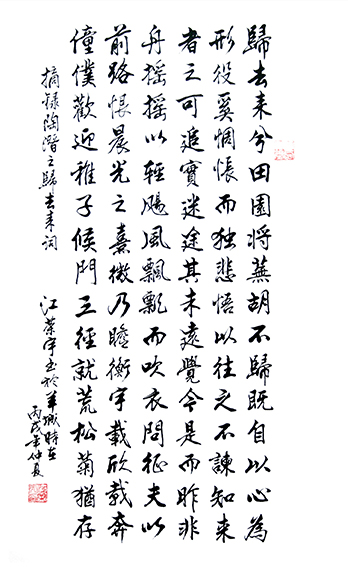 歸去来兮田園将蕪胡不歸既自以心為
形役奚惆悵而独悲悟以往之不諫知来
者之可追實迷途其未遠覺今是而昨非
舟摇摇以輕颺風飄飄而吹衣問征夫以
前路恨晨光之熹微乃瞻衡宇載欣載奔
僮僕歡迎稚子候門三徑就荒松菊猶存
摘録陶潛之歸去来词
江宇书於羊城時在
丙戌年仲夏